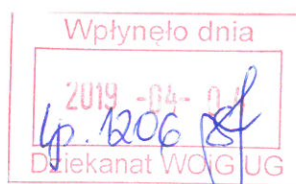 Wpłynęło dnia
2019 -04-
lp. 1206
Dziekanat WOiG UG